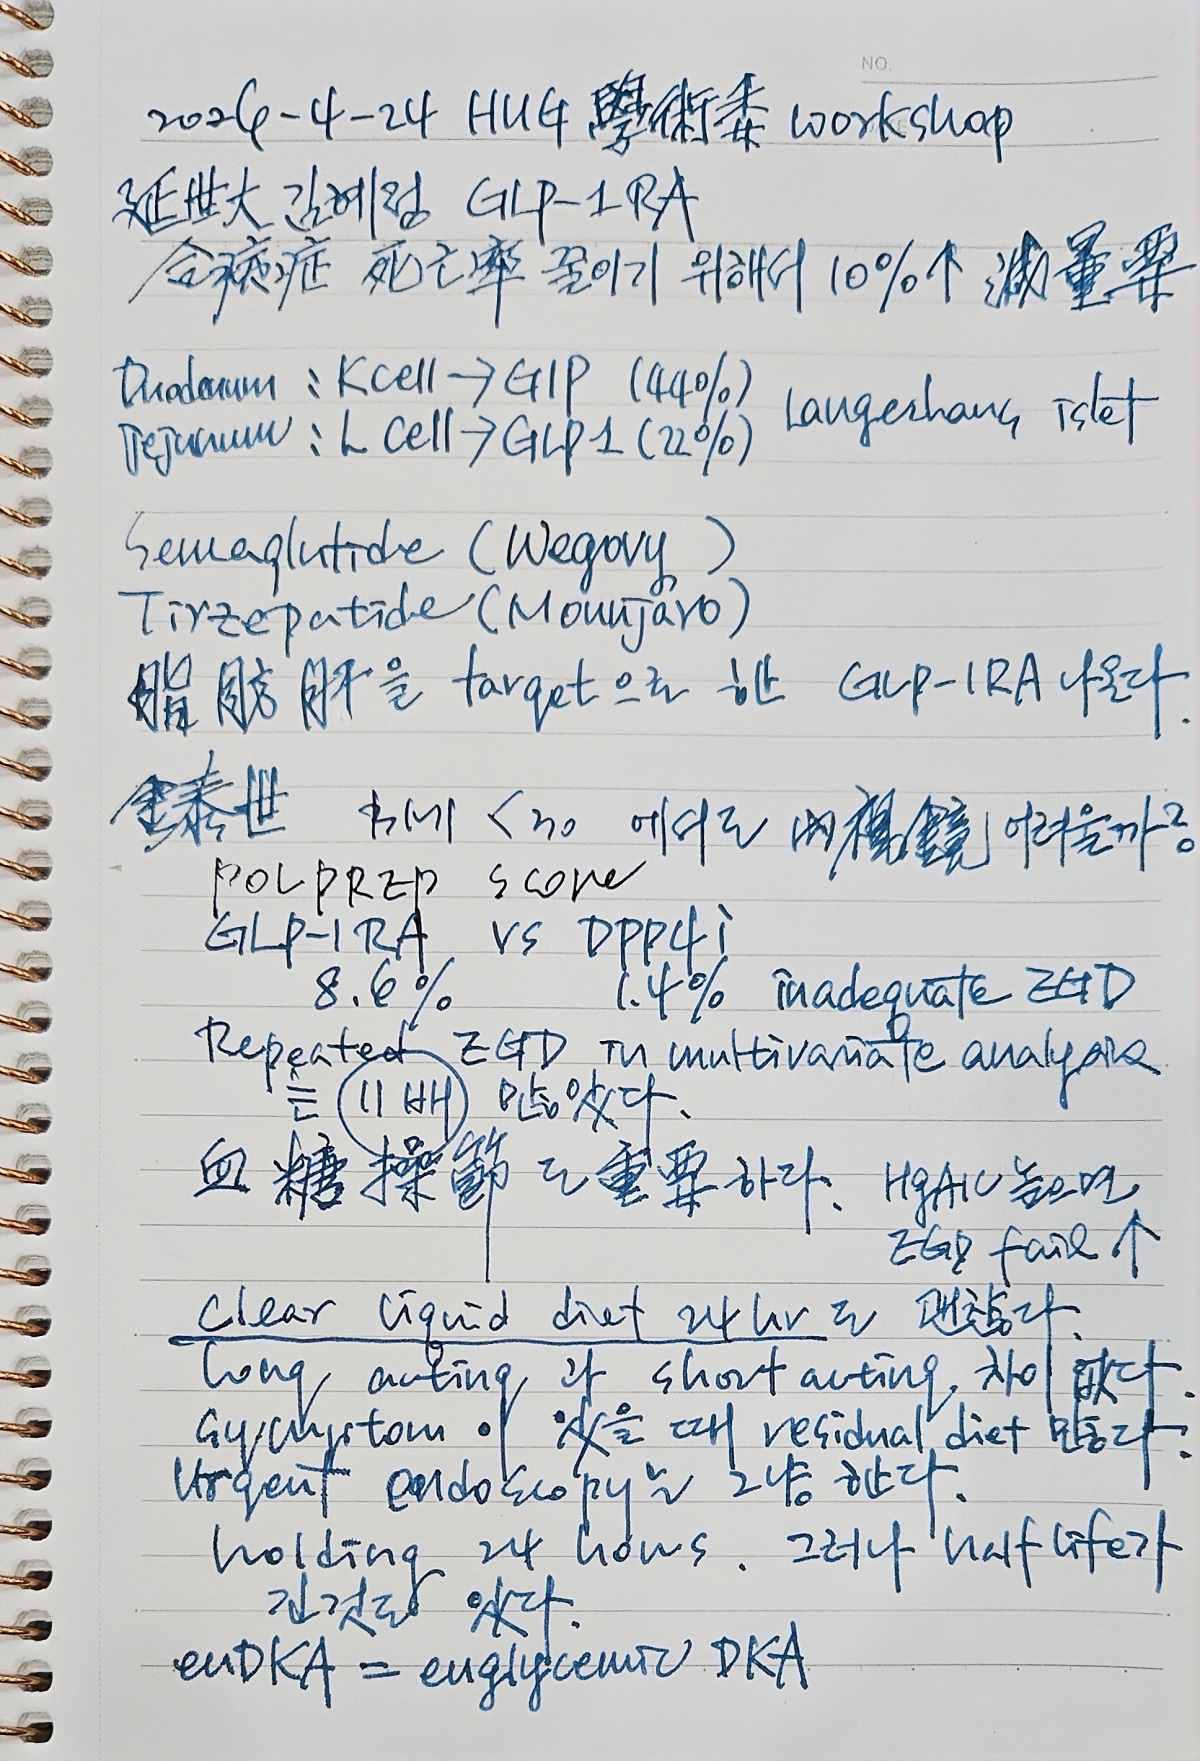 NO.
2026-4-24 HUG 學術委 workshop
延世大 김예림 GLP-1RA
合倂症 死亡率 줄이기 위해서 10%↑ 減量要
Duodenum : K cell → GIP (44%)
Jejunum : L cell → GLP1 (22%)
Langerhans islet
Semaglutide (Wegovy)
Tirzepatide (Mounjaro)
脂肪肝을 target으로 한 GLP-1RA 나온다.
金泰世 BMI < 30 에서도 內視鏡 어려울까?
POLPREP score
GLP-1RA vs DPP4i
8.6% 1.4% inadequate EGD
Repeated EGD in multivariate analysis
는 11배 많았다.
血糖操節도 重要하다. HgA1C 높으면
EGD fail ↑
Clear liquid diet 24hr도 괜찮다.
Long acting 과 short acting 차이 없다.
Symptom이 있을 때 residual diet 많다.
Urgent endoscopy는 그냥 한다.
holding 24 hours. 그러나 half life가
긴것도 있다.
euDKA = euglycemic DKA